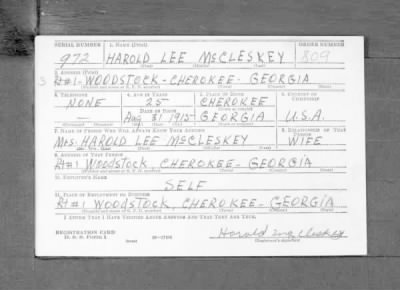 SERIAL NUMBER 1. NAME (Print) ORDER NUMBER
972 HAROLD LEE McCLESKEY 809
2. ADDRESS (Print)
Rt #1 - WOODSTOCK - CHEROKEE - GEORGIA
3. TELEPHONE 4. AGE IN YEARS 5. PLACE OF BIRTH 6. COUNTRY OF CITIZENSHIP
NONE 25 CHEROKEE
DATE OF BIRTH
Aug 31 1915 GEORGIA U.S.A.
7. NAME OF PERSON WHO WILL ALWAYS KNOW YOUR ADDRESS 8. RELATIONSHIP OF THAT PERSON
Mrs. HAROLD LEE McCLESKEY WIFE
9. ADDRESS OF THAT PERSON
Rt #1 WOODSTOCK, CHEROKEE - GEORGIA
10. EMPLOYER'S NAME
SELF
11. PLACE OF EMPLOYMENT OR BUSINESS
Rt #1 WOODSTOCK, CHEROKEE - GEORGIA
I AFFIRM THAT I HAVE VERIFIED ABOVE ANSWERS AND THAT THEY ARE TRUE.
REGISTRATION CARD
D. S. S. Form 1
Harold McCleskey
(Registrant's signature)